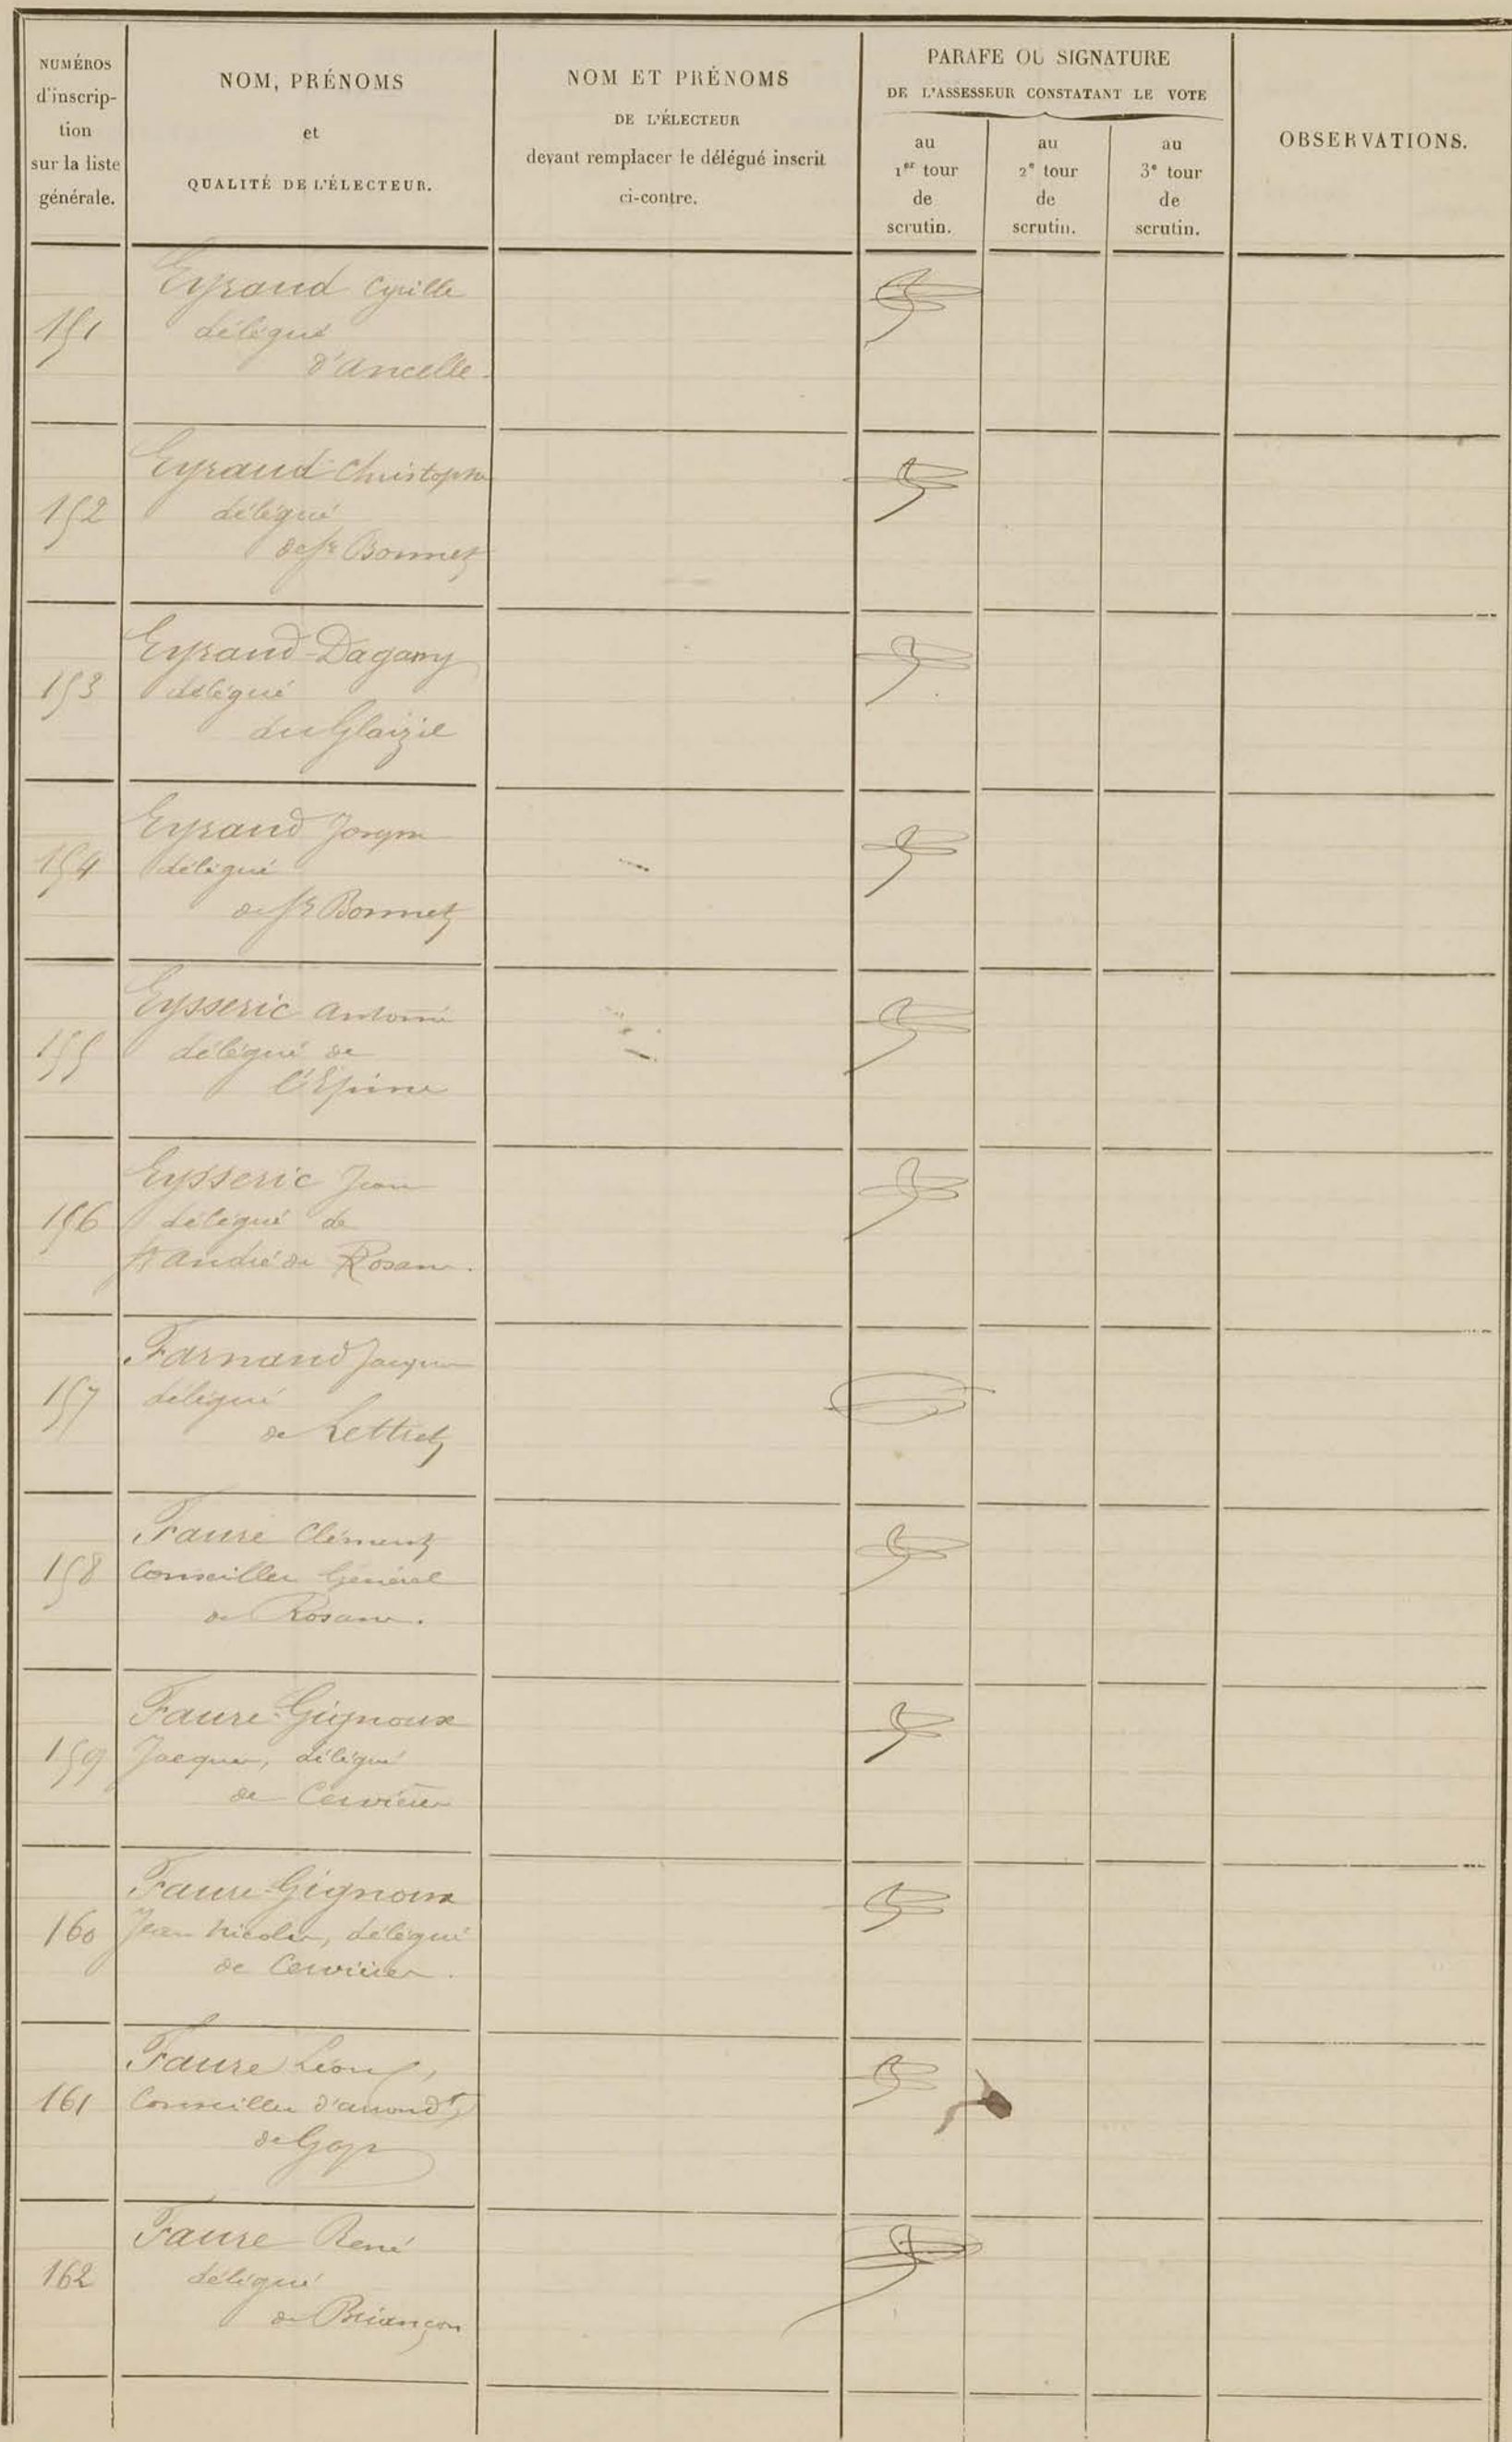 NUMÉROS
d'inscrip-
tion
sur la liste
générale.
NOM, PRÉNOMS
et
QUALITÉ DE L'ÉLECTEUR.
NOM ET PRÉNOMS
DE L'ÉLECTEUR
devant remplacer le délégué inscrit
ci-contre.
PARAFE OU SIGNATURE
DE L'ASSESSEUR CONSTATANT LE VOTE
au
1er tour
de
scrutin.
au
2e tour
de
scrutin.
au
3e tour
de
scrutin.
OBSERVATIONS.
151
Eyraud Cyrille
délégué
d'Ancelle.
152
Eyraud Christophe
délégué
de St Bonnet
153
Eyraud-Dagany
délégué
du Glaizil
154
Eyraud Joseph
délégué
de St Bonnet
155
Eysseric Antoine
délégué de
l'Epine
156
Eysseric Jean
délégué de
St André de Rosans.
157
Farnaud Jacques
délégué
de Lettret
158
Faure Clément
Conseiller Général
de Rosans.
159
Faure-Gignoux
Jacques, délégué
de Cervières
160
Faure-Gignoux
Jean Nicolas, délégué
de Cervières.
161
Faure Léon,
Conseiller d'arrondt
de Gap
162
Faure René
délégué
de Briançon